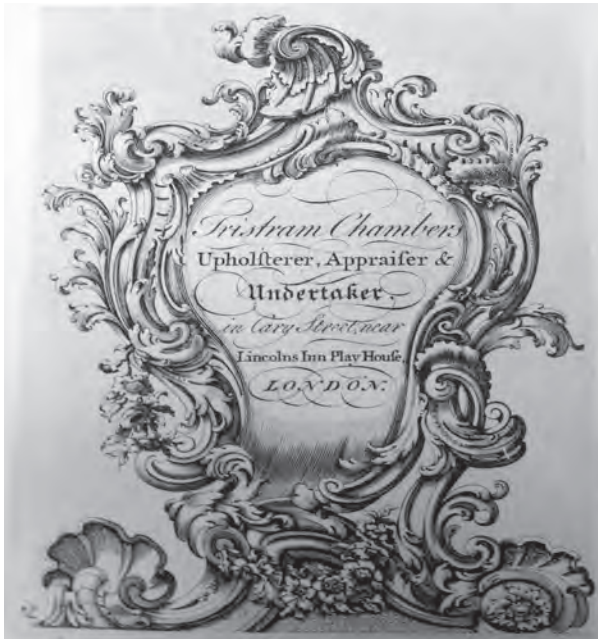 Tristram Chambers
Upholſterer, Appraiſer &
Undertaker,
in Cary Street, near
Lincolns Inn Play Houſe,
LONDON.